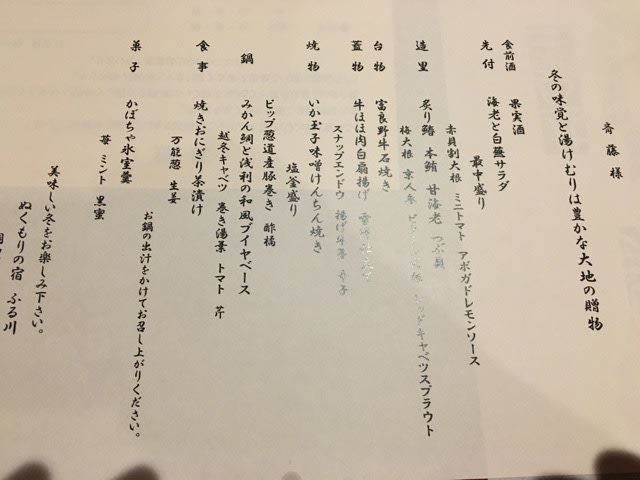 斉藤 様
冬の味覚と湯けむりは豊かな大地の贈物
食前酒 果実酒
先付 海老と白蕪サラダ 最中盛り
赤貝割大根 ミニトマト アボガドレモンソース
造里 炙り鰆 本鮪 甘海老 つぶ貝
梅大根 京人参 レッドキャベツスプラウト
台物 富良野牛石焼き
蓋物 牛ほほ肉白扇揚げ
スナップエンドウ 揚げ牛蒡
焼物 いか玉子味噌けんちん焼き
塩釜盛り
ピップ葱道産豚巻き 酢橘
鍋 みかん鯛と浅利の和風ブイヤベース
越冬キャベツ 巻き湯葉 トマト 芹
食事 焼きおにぎり茶漬け
万能葱 生姜
お鍋の出汁をかけてお召し上がりください。
菓子 かぼちゃ氷室羹
苺 ミント 黒蜜
美味しい冬をお楽しみ下さい。
ぬくもりの宿 ふる川